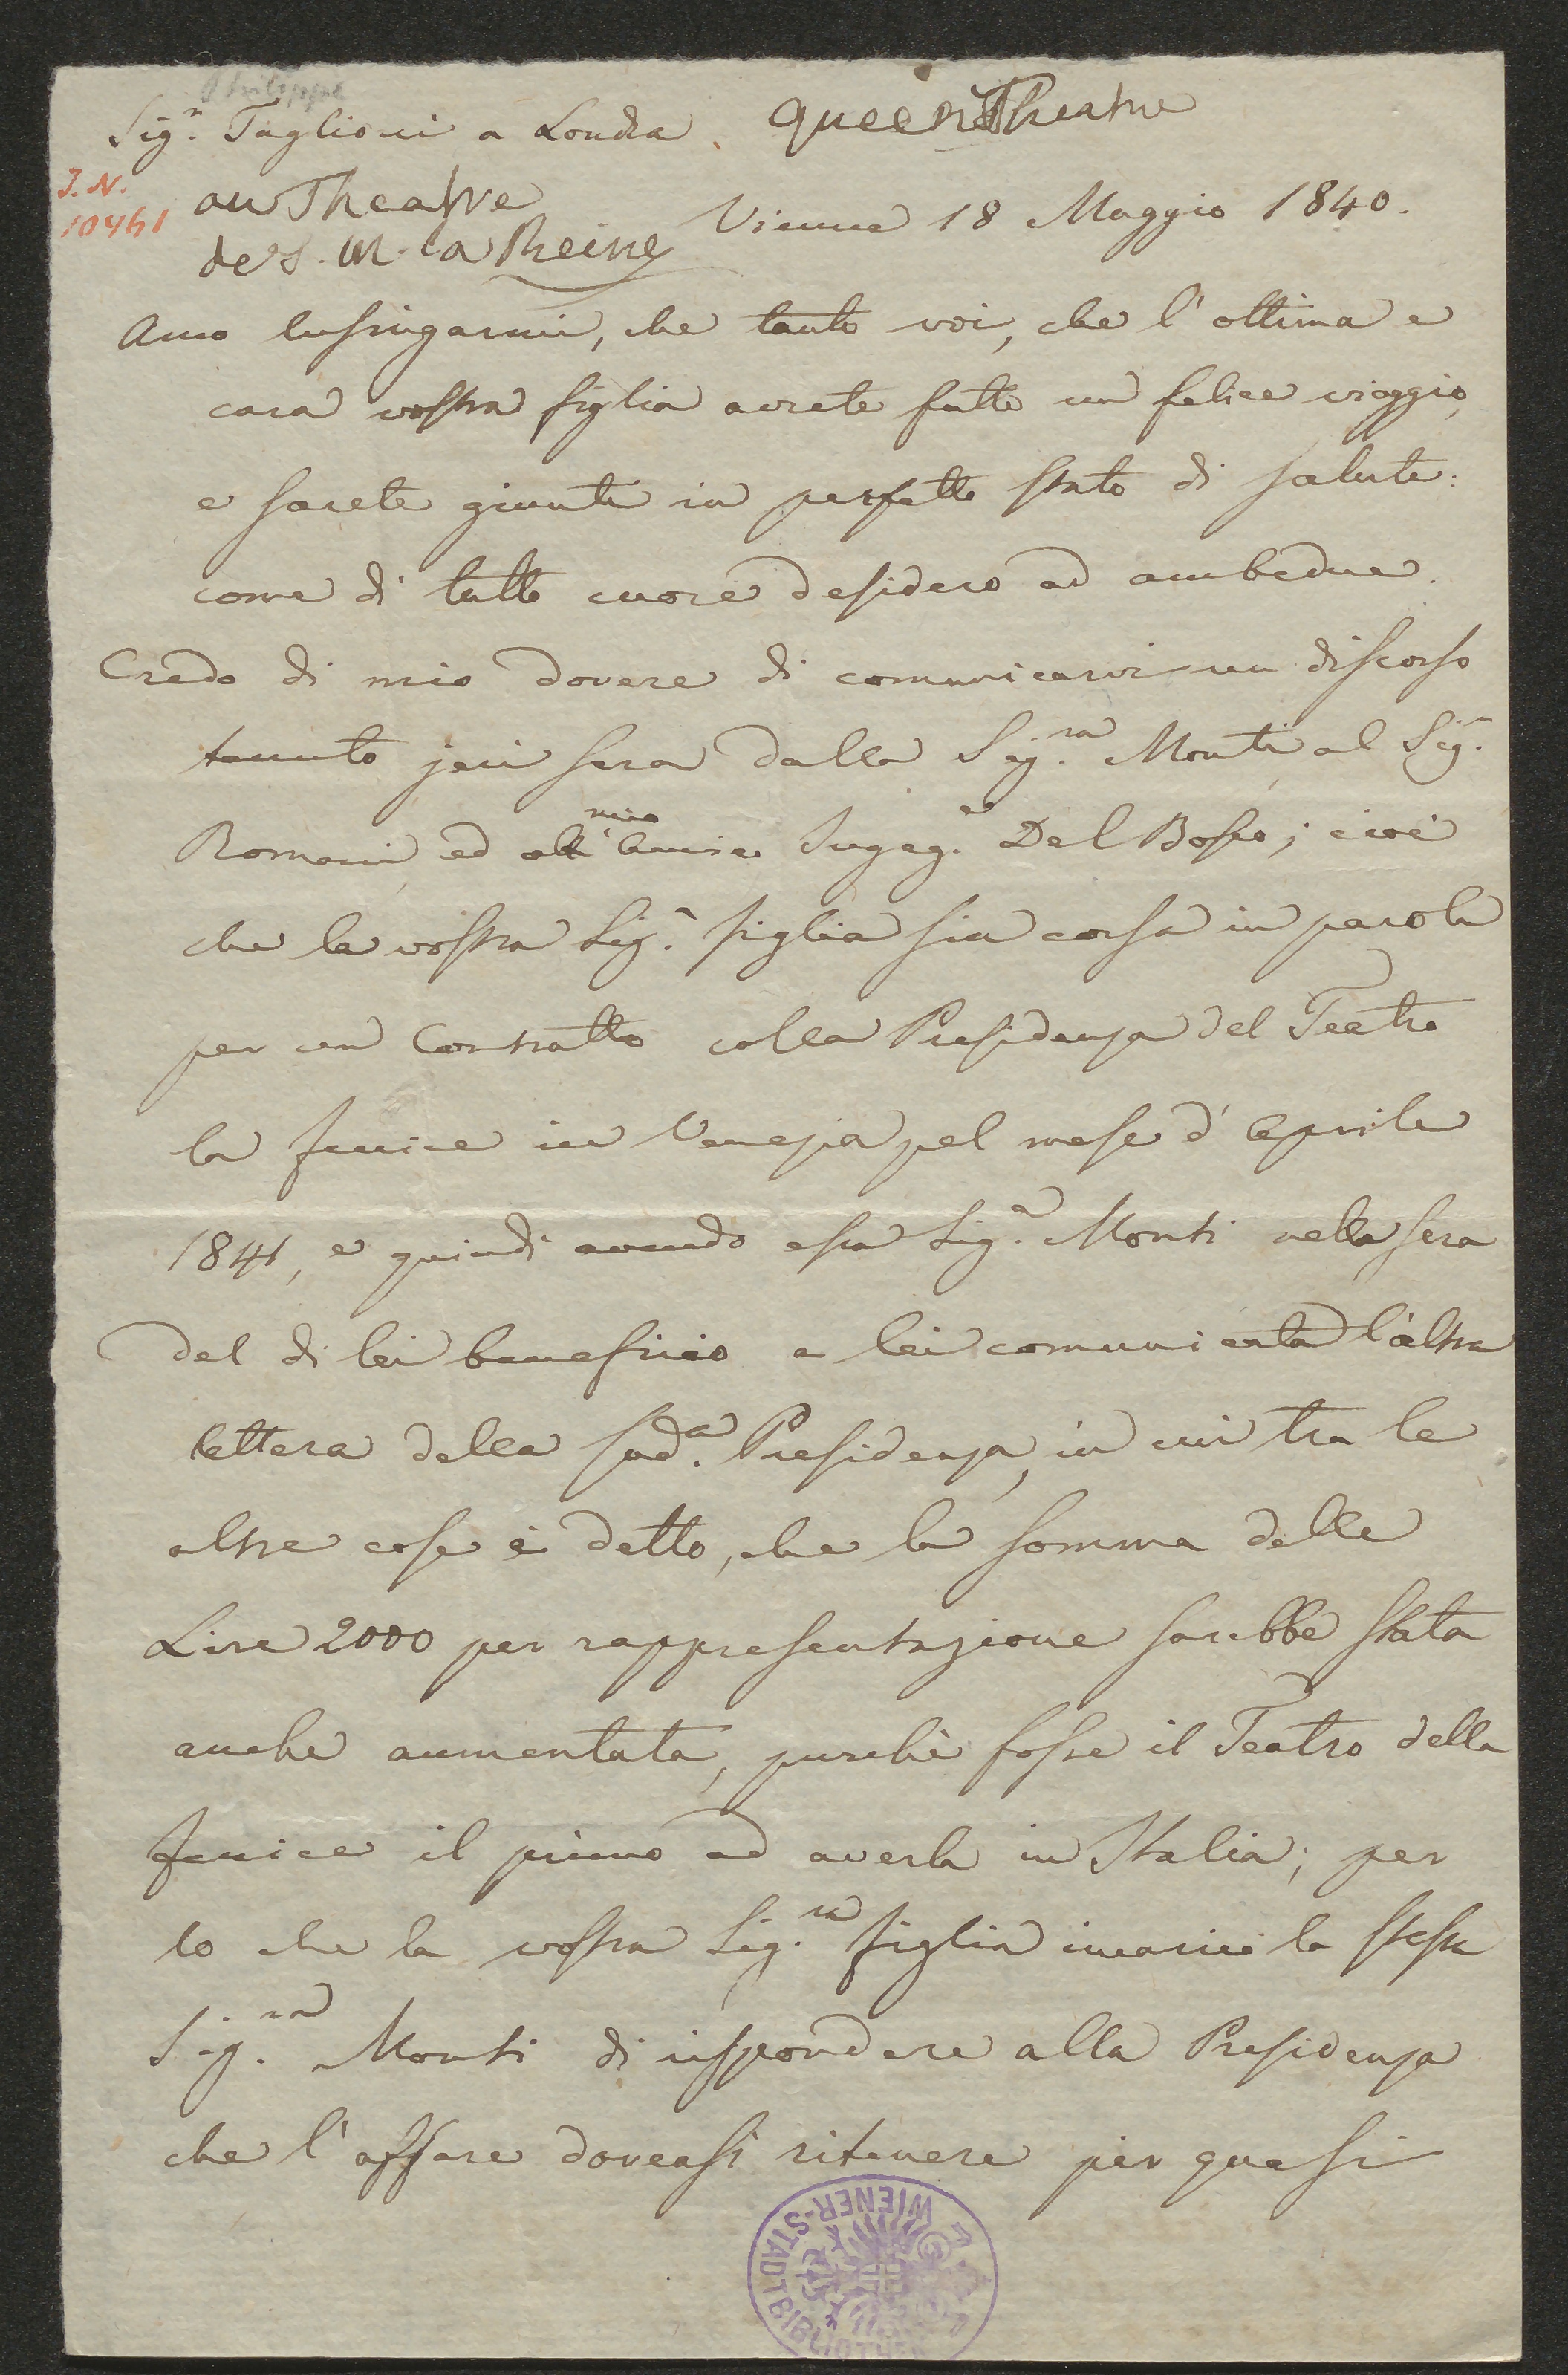 Philippe
Sig.r Taglioni a Londra. Queen's Theatre
J. N.
10461
au Theatre
de S. M. la Reine
Vienna 18 Maggio 1840.
Amo lusingarmi, che tanto voi, che l'ottima e
cara vostra figlia avrete fatto un felice viaggio,
e sarete giunti in perfetto stato di salute:
come di tutto cuore desidero ad ambedue.
Credo di mio dovere di comunicarvi un discorso
tenuto jeri sera dalla Sig.ra Monti al Sig.r
Romani, ed al mio Amico Ingeg.e Del Bosco; cioè
che la vostra Sig.a figlia sia corsa in parola
per un Contratto colla Presidenza del Teatro
la Fenice in Venezia pel mese d'Aprile
1841, e quindi avendo essa Sig.a Monti nella sera
del di lei beneficio a lei comunicata l'altra
lettera della sud.a Presidenza, in cui tra le
altre cose è detto, che la somma delle
Lire 2000 per rappresentazione sarebbe stata
anche aumentata, purchè fosse il Teatro della
Fenice il primo ad averla in Italia; per
lo che la vostra Sig.ra figlia incaricò la stessa
Sig.ra Monti di rispondere alla Presidenza
che l'affare doveasi ritenere per quasi
WIENER-STADTBIBLIOTHEK